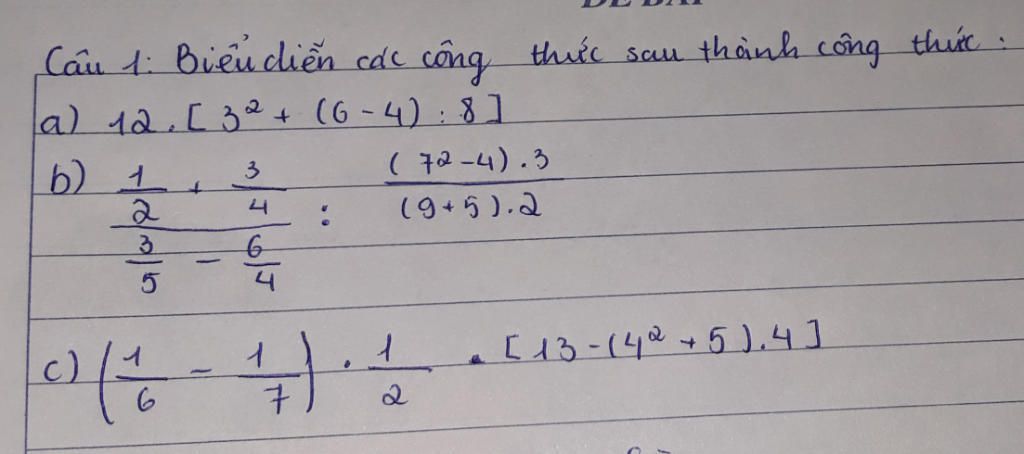 ĐỀ BÀI
Câu 1: Biểu diễn các công thức sau thành công thức:
a) 12 . [ 3² + (6 - 4) : 8 ]
b) (1/2 + 3/4)/(3/5 - 6/4) : ((7² - 4) . 3)/((9 + 5) . 2)
c) (1/6 - 1/7) . 1/2 . [ 13 - (4² + 5) . 4 ]